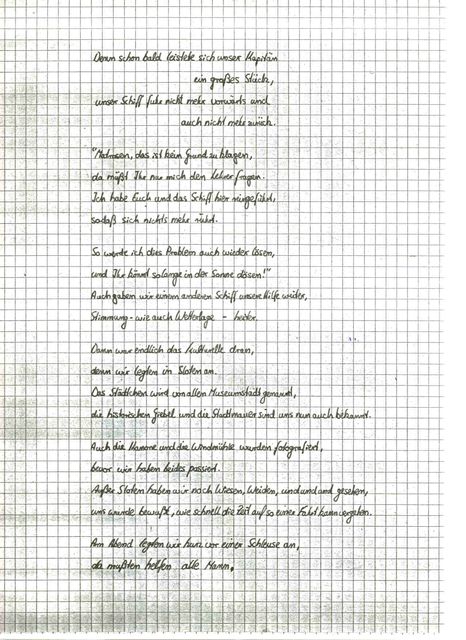 Denn schon bald leistete sich unser Kapitän
ein großes Stück,
unser Schiff fuhr nicht mehr vorwärts und
auch nicht mehr zurück.
"Matrosen, das ist kein Grund zu klagen,
da müßt Ihr nur mich den Lehrer fragen.
Ich habe Euch und das Schiff hier reingeführt,
sodaß sich nichts mehr rührt.
So werde ich dies Problem auch wieder lösen,
und Ihr könnt solange in der Sonne dösen!"
Auch gaben wir einem anderen Schiff unsere Hilfe weiter,
Stimmung - wie auch Wetterlage - heiter.
Dann war endlich das Kulturelle dran,
denn wir legten in Sloten an.
Das Städtchen wird von allen Museumstadt genannt,
die historischen Giebel und die Stadtmauer sind uns nun auch bekannt.
Auch die Kanone und die Windmühle wurden fotografiert,
bevor wir haben beides passiert.
Außer Sloten haben wir noch Wiesen, Weiden, und und und gesehen,
uns wurde bewußt, wie schnell die Zeit auf so einer Fahrt kann vergehen.
Am Abend legten wir kurz vor einer Schleuse an,
da mußten helfen alle Mann,